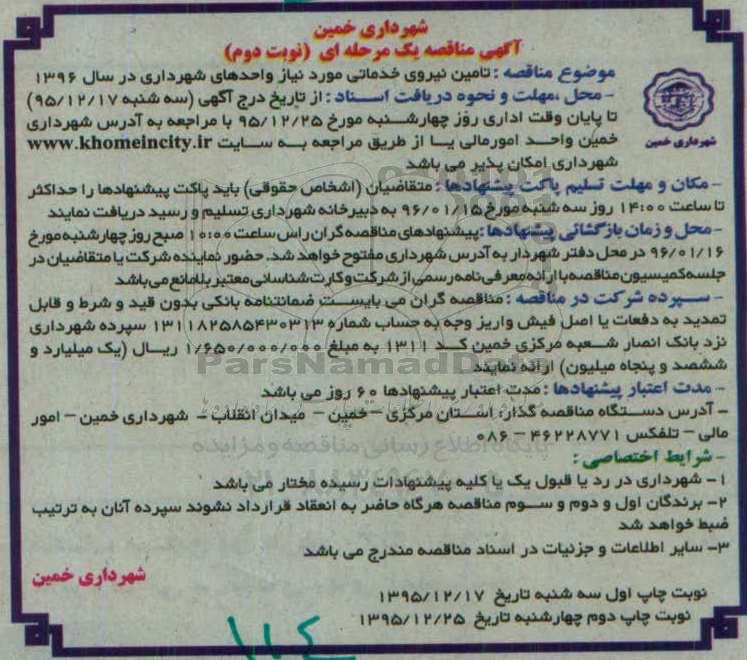 شهرداری خمین
آگهی مناقصه یک مرحله ای (نوبت دوم)
موضوع مناقصه : تامین نیروی خدماتی مورد نیاز واحدهای شهرداری در سال ۱۳۹۶
- محل ،مهلت و نحوه دریافت اسناد : از تاریخ درج آگهی (سه شنبه ۹۵/۱۲/۱۷)
تا پایان وقت اداری روز چهارشنبه مورخ ۹۵/۱۲/۲۵ با مراجعه به آدرس شهرداری
خمین واحد امورمالی یا از طریق مراجعه به سایت www.khomeincity.ir
شهرداری امکان پذیر می باشد
شهرداری خمین
- مکان و مهلت تسلیم پاکت پیشنهادها : متقاضیان (اشخاص حقوقی) باید پاکت پیشنهادها را حداکثر
تا ساعت ۱۴:۰۰ روز سه شنبه مورخ ۹۶/۰۱/۱۵ به دبیرخانه شهرداری تسلیم و رسید دریافت نمایند
- محل و زمان بازگشائی پیشنهادها : پیشنهادهای مناقصه گران راس ساعت ۱۰:۰۰ صبح روز چهارشنبه مورخ
۹۶/۰۱/۱۶ در محل دفتر شهردار به آدرس شهرداری مفتوح خواهد شد. حضور نماینده شرکت یا متقاضیان در
جلسه کمیسیون مناقصه با ارائه معرفی نامه رسمی از شرکت و کارت شناسائی معتبر بلامانع می باشد
- سپرده شرکت در مناقصه : مناقصه گران می بایست ضمانتنامه بانکی بدون قید و شرط و قابل
تمدید به دفعات یا اصل فیش واریز وجه به حساب شماره ۱۳۱۱۸۲۵۸۵۴۳۰۳۱۳ سپرده شهرداری
نزد بانک انصار شعبه مرکزی خمین کد ۱۳۱۱ به مبلغ ۱/۶۵۰/۰۰۰/۰۰۰ ریال (یک میلیارد و
ششصد و پنجاه میلیون) ارائه نمایند
ParsNamadData
- مدت اعتبار پیشنهادها : مدت اعتبار پیشنهادها ۶۰ روز می باشد
- آدرس دستگاه مناقصه گذار: استان مرکزی – خمین – میدان انقلاب – شهرداری خمین – امور
مالی – تلفکس ۴۶۲۲۸۷۷۱ – ۰۸۶
پایگاه اطلاع رسانی مناقصه و مزایده
- شرایط اختصاصی :
۱- شهرداری در رد یا قبول یک یا کلیه پیشنهادات رسیده مختار می باشد
۲- برندگان اول و دوم و سوم مناقصه هرگاه حاضر به انعقاد قرارداد نشوند سپرده آنان به ترتیب
ضبط خواهد شد
۳- سایر اطلاعات و جزئیات در اسناد مناقصه مندرج می باشد
شهرداری خمین
نوبت چاپ اول سه شنبه تاریخ ۱۳۹۵/۱۲/۱۷
نوبت چاپ دوم چهارشنبه تاریخ ۱۳۹۵/۱۲/۲۵